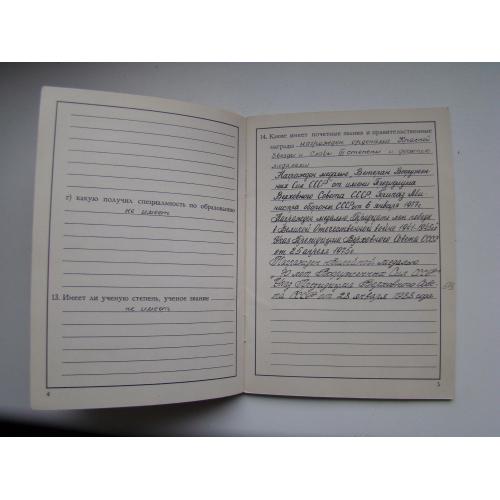 г) какую получил специальность по образованию
не имеет
13. Имеет ли ученую степень, ученое звание
не имеет
4
14. Какие имеет почетные звания и правительственные
награды награжден орденами Красной
Звезды и Слава III степени и
медалями
Награжден медалью Ветеран Вооружен-
ных Сил СССР от имени Президиума
Верховного Совета СССР. Приказ Ми-
нистра обороны СССР от 6 января 1977г.
Награжден медалью Тридцать лет победы
в Великой Отечественной войне 1941-1945гг
Указ Президиума Верховного Совета СССР
от 25 апреля 1975г.
Награжден юбилейной медалью
70 лет Вооруженных Сил СССР
Указ Президиума Верховного Сове-
та СССР от 28 января 1988 года
5